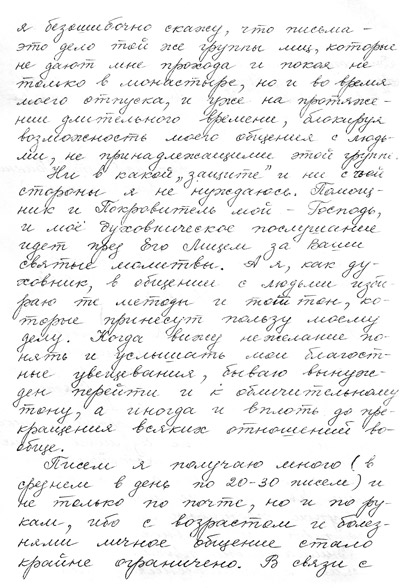 я безошибочно скажу, что письма –
это дело той же группы лиц, которые
не дают мне прохода и покоя не
только в монастыре, но и во время
моего отпуска, и уже на протяже-
нии длительного времени, блокируя
возможность моего общения с людь-
ми, не принадлежащими этой группе.
Ни в какой „защите" и ни с чьей
стороны я не нуждаюсь. Помощ-
ник и Покровитель мой – Господь,
и моё духовническое послушание
идет пред Его Лицем за Ваши
святые молитвы. А я, как ду-
ховник, в общении с людьми изби-
раю те методы и тот тон, ко-
торые принесут пользу моему
делу. Когда вижу нежелание по-
нять и услышать мои благост-
ные увещевания, бываю вынуж-
ден перейти и к обличительному
тону, а иногда и вплоть до пре-
кращения всяких отношений во-
обще.
Писем я получаю много (в
среднем в день по 20-30 писем) и
не только по почте, но и по ру-
кам, ибо с возрастом и болез-
нями личное общение стало
крайне ограничено. В связи с